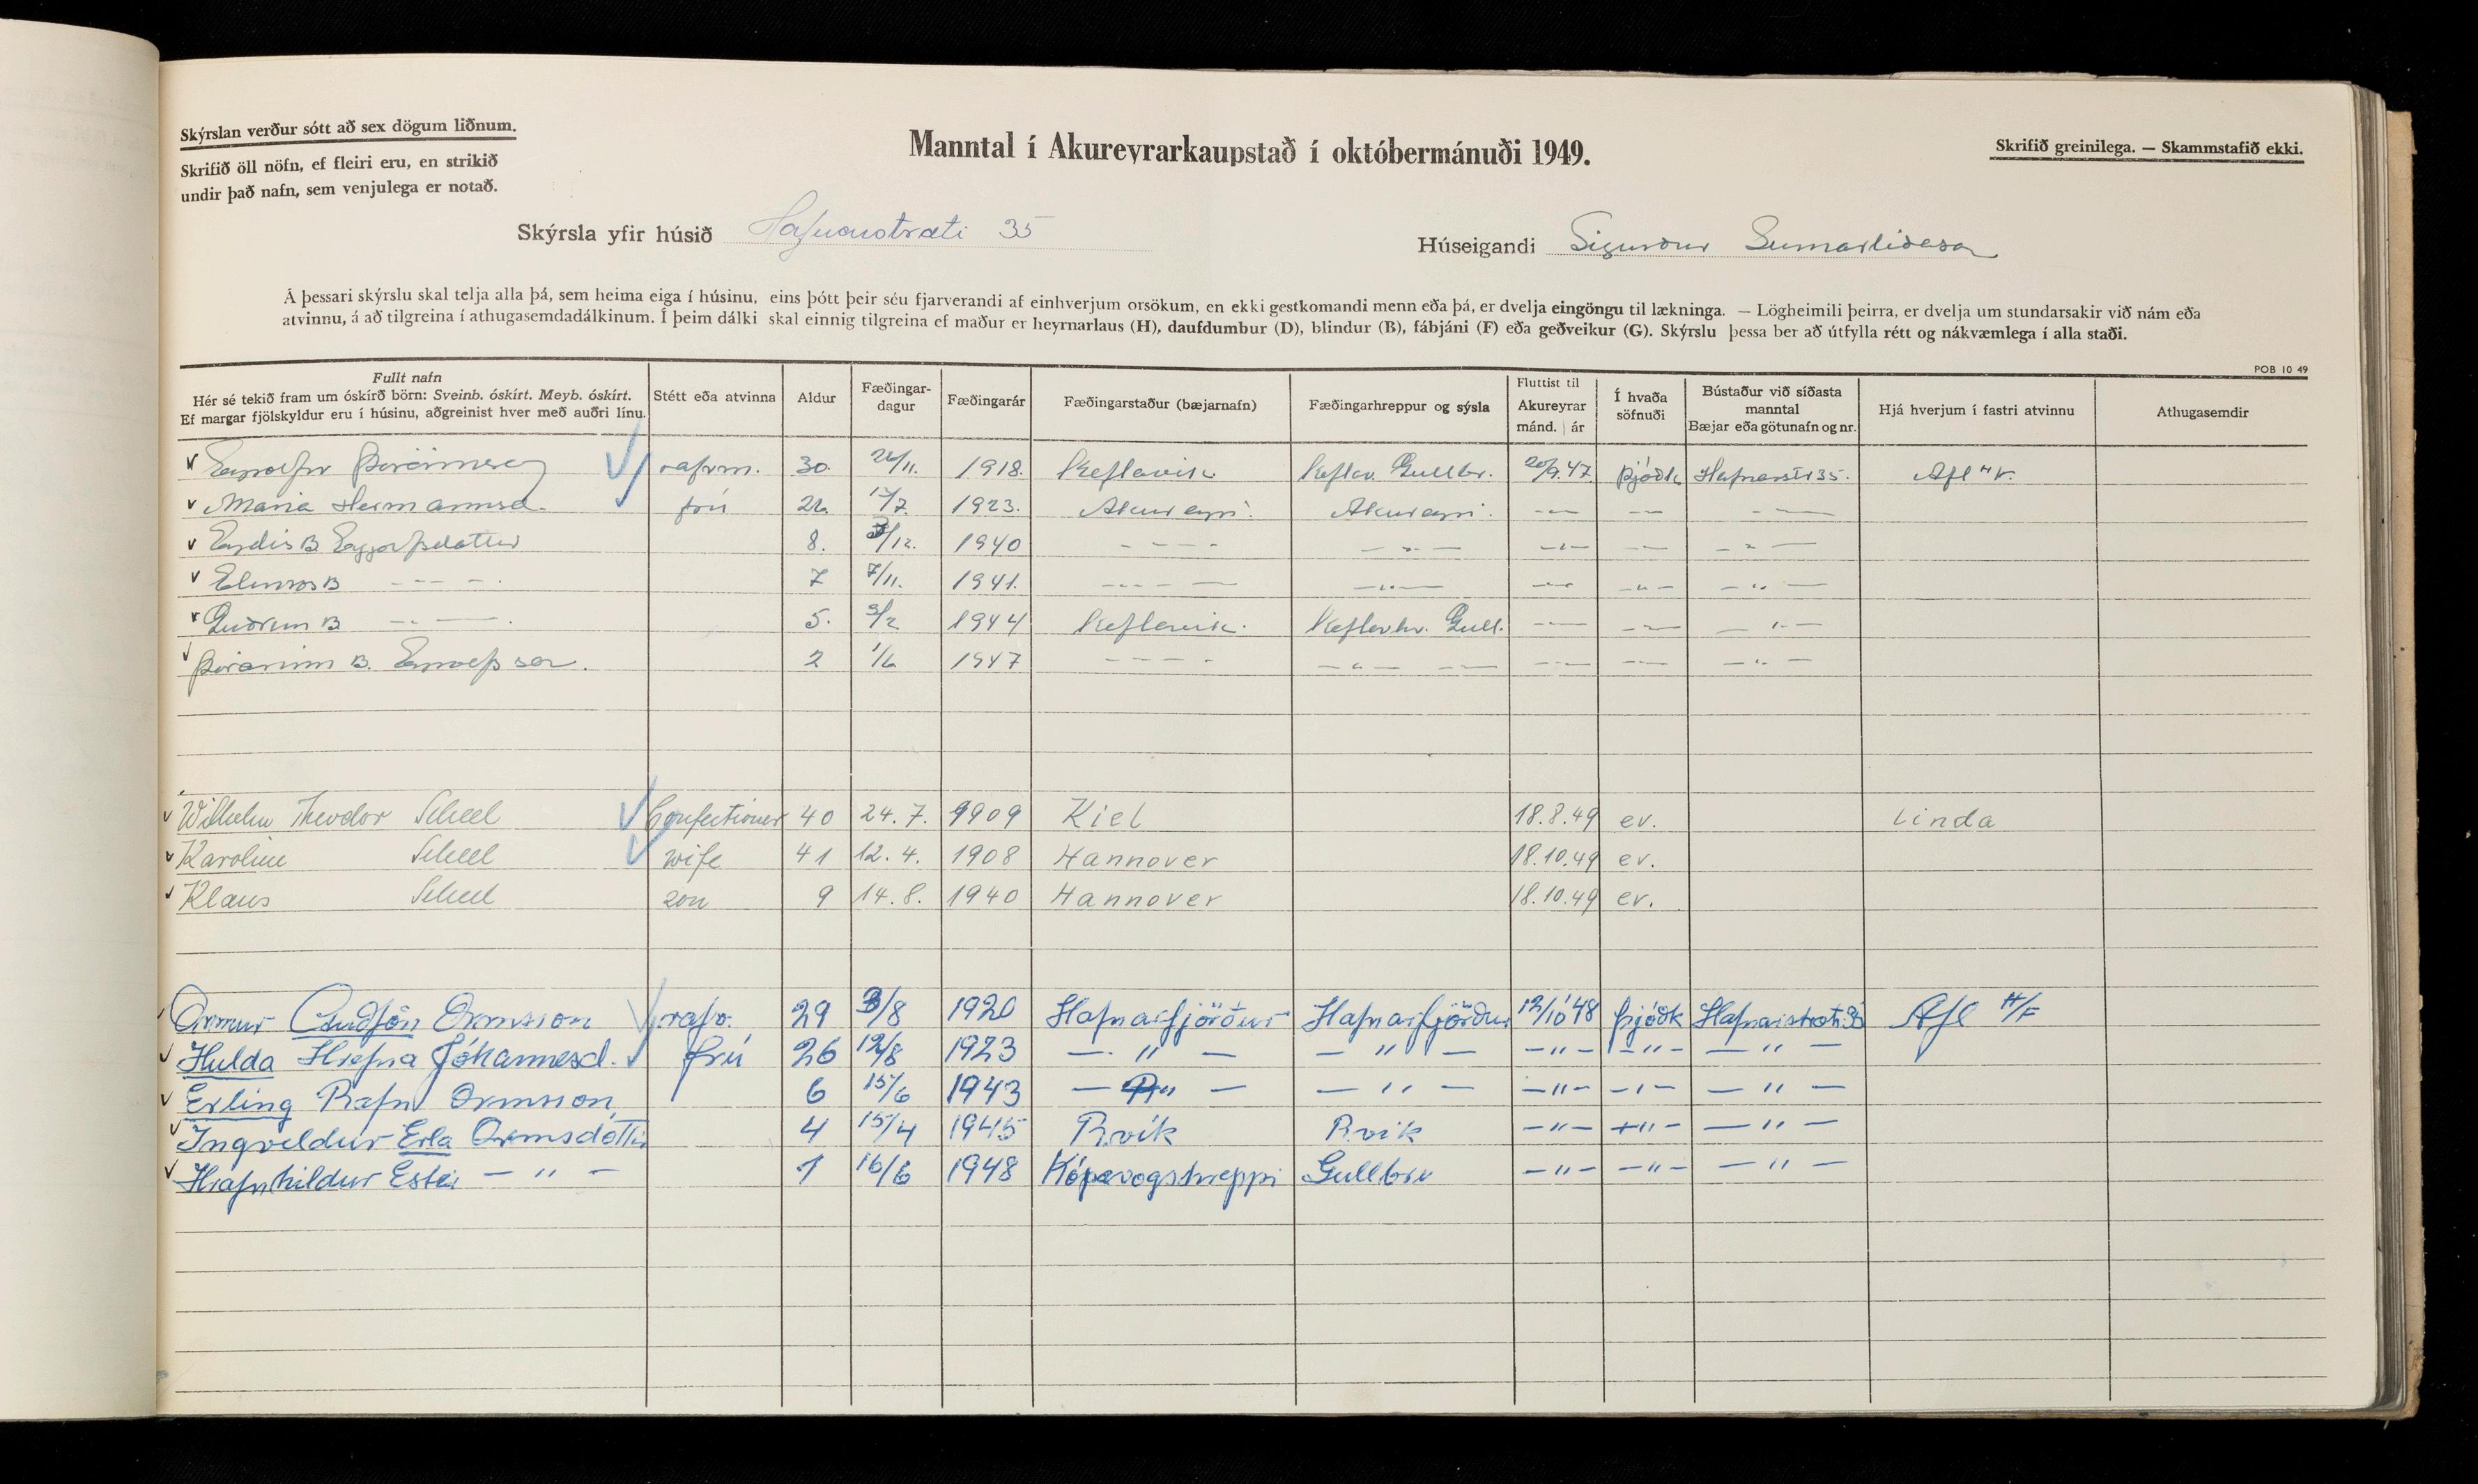 Skýrslan verður sótt að sex dögum liðnum.
Skrifið öll nöfn, ef fleiri eru, en strikið
undir það nafn, sem venjulega er notað.
Manntal í Akureyrarkaupstað í októbermánuði 1949.
Skrifið greinilega. — Skammstafið ekki.
Skýrsla yfir húsið Hafnarstræti 35
Húseigandi Sigurður Sumarliðason
Á þessari skýrslu skal telja alla þá, sem heima eiga í húsinu, eins þótt þeir séu fjarverandi af einhverjum orsökum, en ekki gestkomandi menn eða þá, er dvelja eingöngu til lækninga. — Lögheimili þeirra, er dvelja um stundarsakir við nám eða
atvinnu, á að tilgreina í athugasemdadálkinum. Í þeim dálki skal einnig tilgreina ef maður er heyrnarlaus (H), daufdumbur (D), blindur (B), fábjáni (F) eða geðveikur (G). Skýrslu þessa ber að útfylla rétt og nákvæmlega í alla staði.
POB 10 49
Fullt nafn
Hér sé tekið fram um óskírð börn: Sveinb. óskírt. Meyb. óskírt.
Ef margar fjölskyldur eru í húsinu, aðgreinist hver með auðri línu.
Stétt eða atvinna
Aldur
Fæðingar-
dagur
Fæðingarár
Fæðingarstaður (bæjarnafn)
Fæðingarhreppur og sýsla
Fluttist til
Akureyrar
mánd. ár
Í hvaða
söfnuði
Bústaður við síðasta
manntal
Bæjar eða götunafn og nr.
Hjá hverjum í fastri atvinnu
Athugasemdir
rafvm. 30. 1918. Keflavík Keflav. Gullbr. Þjóðk Hafnarstr 35.
Maria Hermannsd. frú 17/7. 1923. Akureyri. Akureyri. — " — — " — — " —
8. /12. 1940 — " — — " — — " — — " — — " —
7 7/11. 1941. — " — — " — — " — — " — — " —
Guðrun B — " — 5. 1944 Keflavik. Keflavhr. Gull. — " — — " — — " —
Þórarinn B. 2 1/6 1947 — " — — " — — " — — " — — " —
Wilhelm Theodor Scheel Confectioner 40 24. 7. 1909 Kiel 18.8.49 ev. Linda
Karoline Scheel wife 41 12. 4. 1908 Hannover 18.10.49 ev.
Klaus Scheel zon 9 14. 8. 1940 Hannover 18.10.49 ev.
Ormur Guðjón Ormsson rafv. 29 3/8 1920 Hafnarfjörður Hafnarfjörður 12/10 '48 þjóðk Hafnarstræti 35 Afl H/F
Hulda Hrefna Jóhannesd. frú 26 12/8 1923 — " — — " — — " — — " — — " —
Erling Rafn Ormsson, 6 15/6 1943 — " — — " — — " — — " — — " —
Ingveldur Erla Ormsdóttir 4 15/4 1945 R.vík R.vik — " — — " — — " —
Hrafnhildur Ester — " — 1 16/6 1948 Kópavogshreppi Gullbr — " — — " — — " —